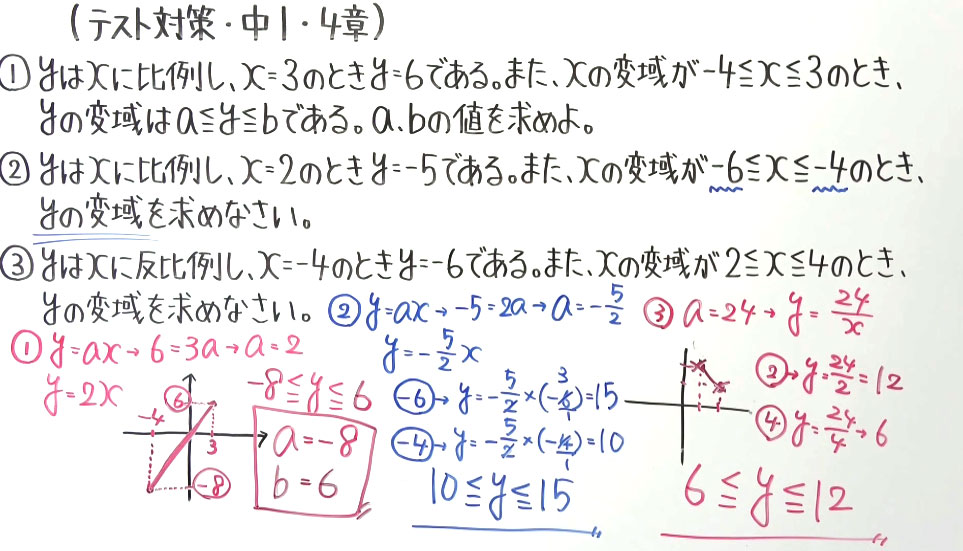 (テスト対策・中1・4章)
① yはxに比例し、x=3のときy=6である。また、xの変域が-4≦x≦3のとき、
yの変域はa≦y≦bである。a、bの値を求めよ。
② yはxに比例し、x=2のときy=-5である。また、xの変域が-6≦x≦-4のとき、
yの変域を求めなさい。
③ yはxに反比例し、x=-4のときy=-6である。また、xの変域が2≦x≦4のとき、
yの変域を求めなさい。
① y=ax→6=3a→a=2
y=2x
-4
6
3
-8
-8≦y≦6
a=-8
b=6
② y=ax→-5=2a→a=-5/2
y=-5/2x
-6→y=-5/2×(-6)=15
3
1
-4→y=-5/2×(-4)=10
1
10≦y≦15
③ a=24→y=24/x
2→y=24/2=12
4 y=24/4→6
6≦y≦12